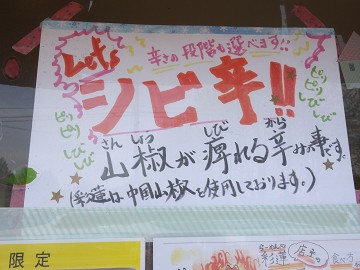 Let's
辛さの段階も選べます!!
シビ辛!!
ピリピリ
しびしび
ピリピリ
しびしび
さん しょう しび から
山椒が痺れる辛みの事です。
(彩蓮は中国山椒を使用しております。)
限定
らーめん
彩蓮
店主の